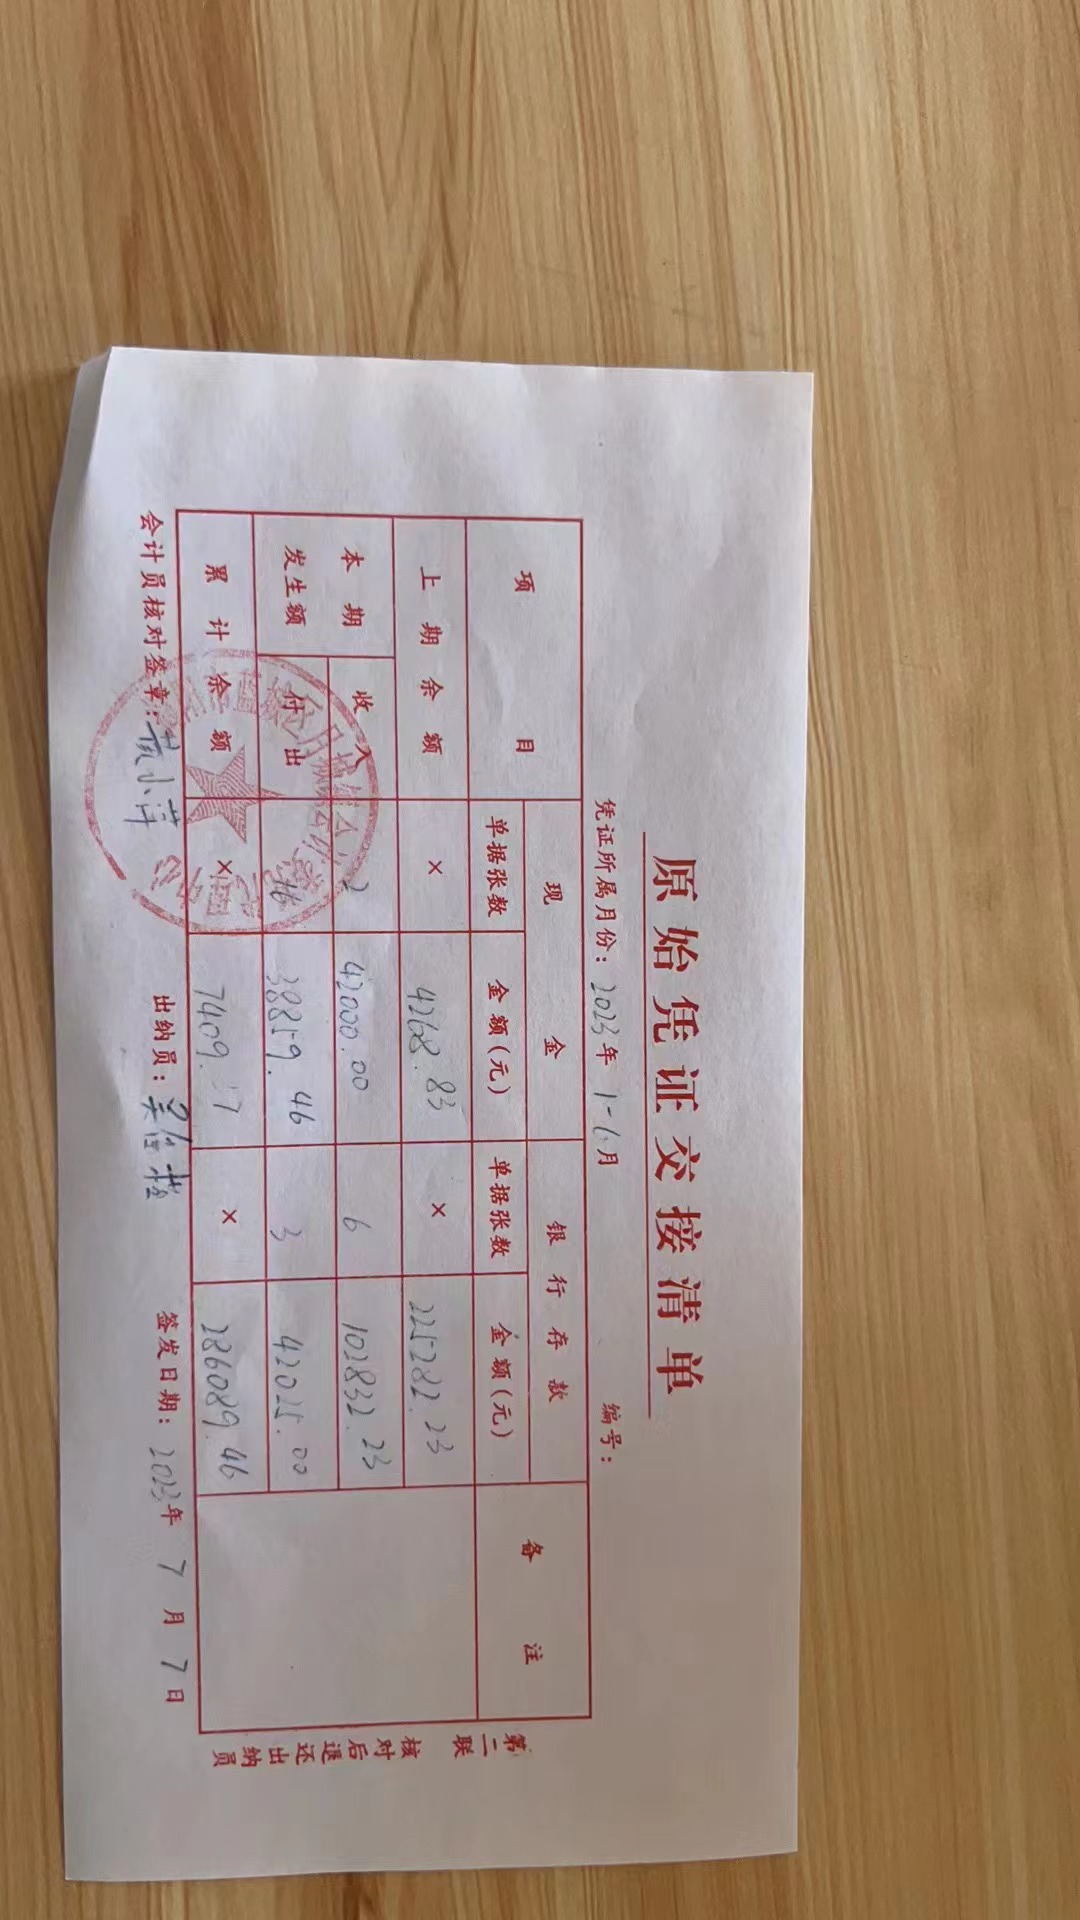 原始凭证交接清单
凭证所属月份：2023年1-6月 编号：
项目 现金 银行存款 备注
单据张数 金额(元) 单据张数 金额(元)
上期余额 × 4268.83 × 225282.23
本期发生额 收入 2 42000.00 6 102832.23
付出 16 38859.46 3 42025.00
累计余额 × 7409. 7 × 286089.46
会计员核对签章：黄小萍 出纳员： 签发日期：2023年7月7日
第二联 核对后退还出纳员